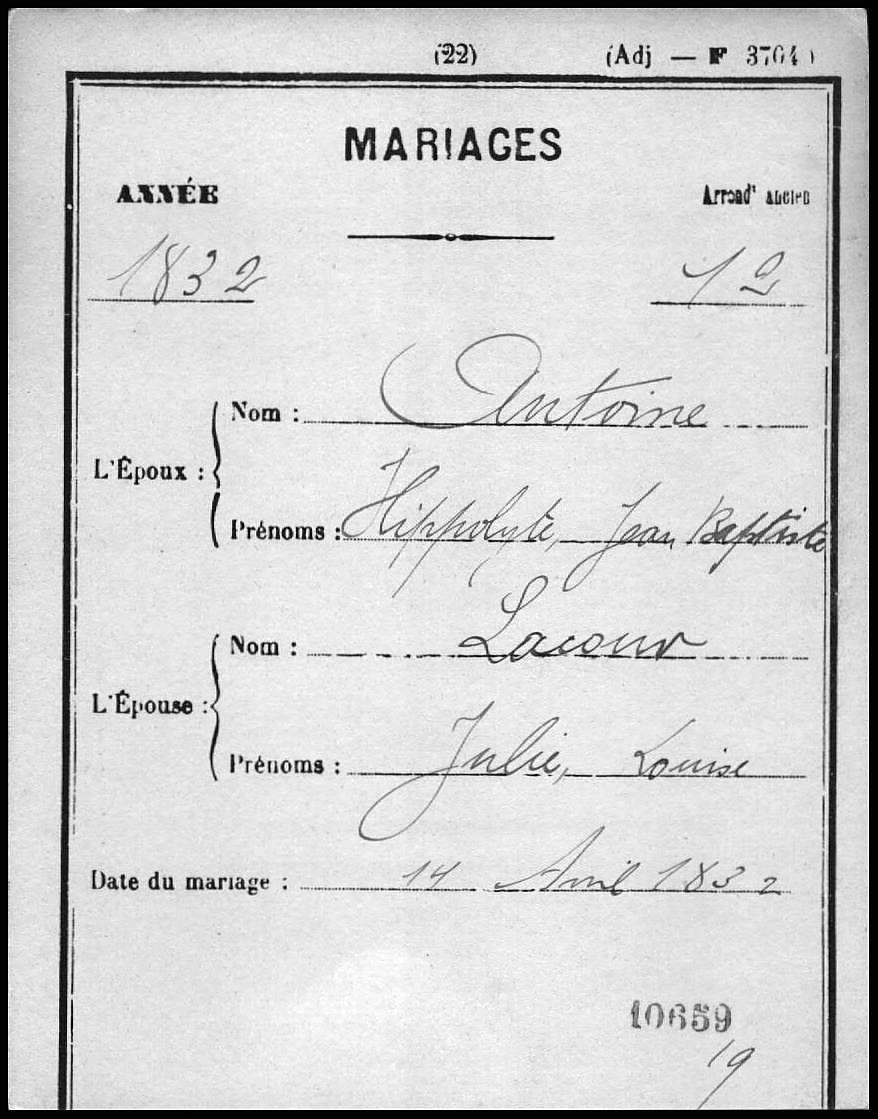 (22) (Adj — F 3704)
MARIAGES
ANNÉE Arrond^t ancien
1832 12
Nom : Antoine
L'Époux :
Prénoms : Hippolyte, Jean Baptiste
Nom : Lacour
L'Épouse :
Prénoms : Julie, Louise
Date du mariage : 14 Avril 1832
10659
19